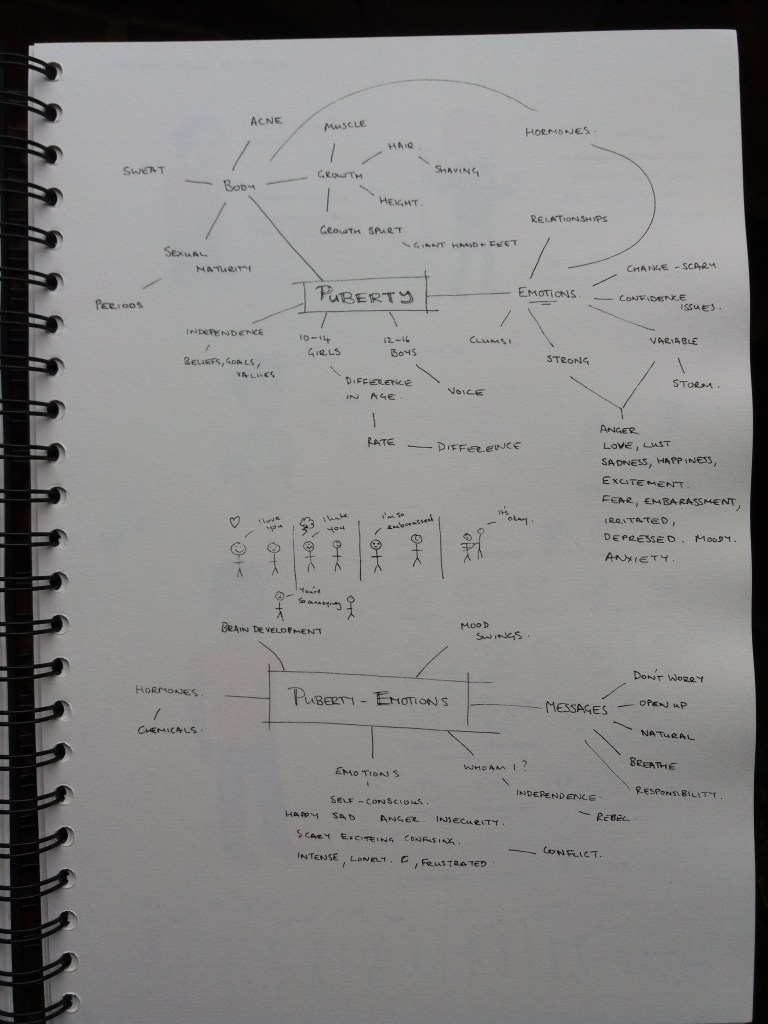 ACNE
MUSCLE
HORMONES.
HAIR.
SWEAT
BODY
GROWTH
SHAVING
HEIGHT.
RELATIONSHIPS
GROWTH SPURT
GIANT HAND + FEET
SEXUAL
MATURITY
CHANGE - SCARY
PUBERTY
EMOTIONS.
CONFIDENCE
ISSUES.
PERIODS
INDEPENDENCE
10-14
GIRLS
12-16
BOYS
CLUMSI
VARIABLE
BELIEFS, GOALS,
VALUES
STRONG
DIFFERENCE
IN AGE.
VOICE
STORM.
RATE
DIFFERENCE
ANGER
LOVE, LUST
SADNESS, HAPPINESS,
EXCITEMENT.
FEAR, EMBARASSMENT,
IRRITATED,
DEPRESSED. MOODY.
ANXIETY.
I love
you
I hate
you
I'm so
embarrassed
It's
okay.
You're
so annoying
BRAIN DEVELOPMENT
MOOD
SWINGS.
HORMONES.
PUBERTY - EMOTIONS
MESSAGES
DON'T WORRY
OPEN UP
NATURAL
CHEMICALS.
BREATHE
RESPONSIBILITY.
EMOTIONS
WHO AM I?
INDEPENDENCE
REBEL
SELF-CONSCIOUS.
HAPPY SAD ANGER INSECURITY.
SCARY EXCITEING CONFUSING.
CONFLICT.
INTENSE, LONELY. , FRUSTRATED.